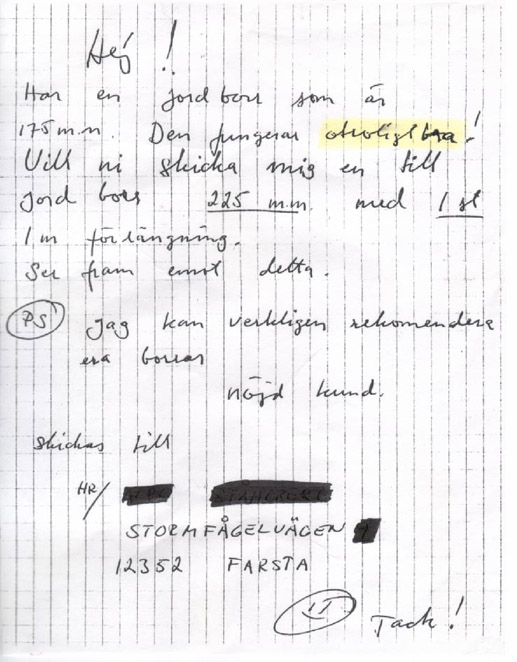 Hej!
Har en jordborr som är
175 m.m. Den fungerar otroligt bra!
Vill ni skicka mig en till
jord borr 225 m.m. med 1 st
1 m förlängning.
Ser fram emot detta.
PS! Jag kan verkligen rekomendera
era borrar
nöjd kund.
skickas till
HR/
STORMFÅGELVÄGEN
12352 FARSTA
Tack!